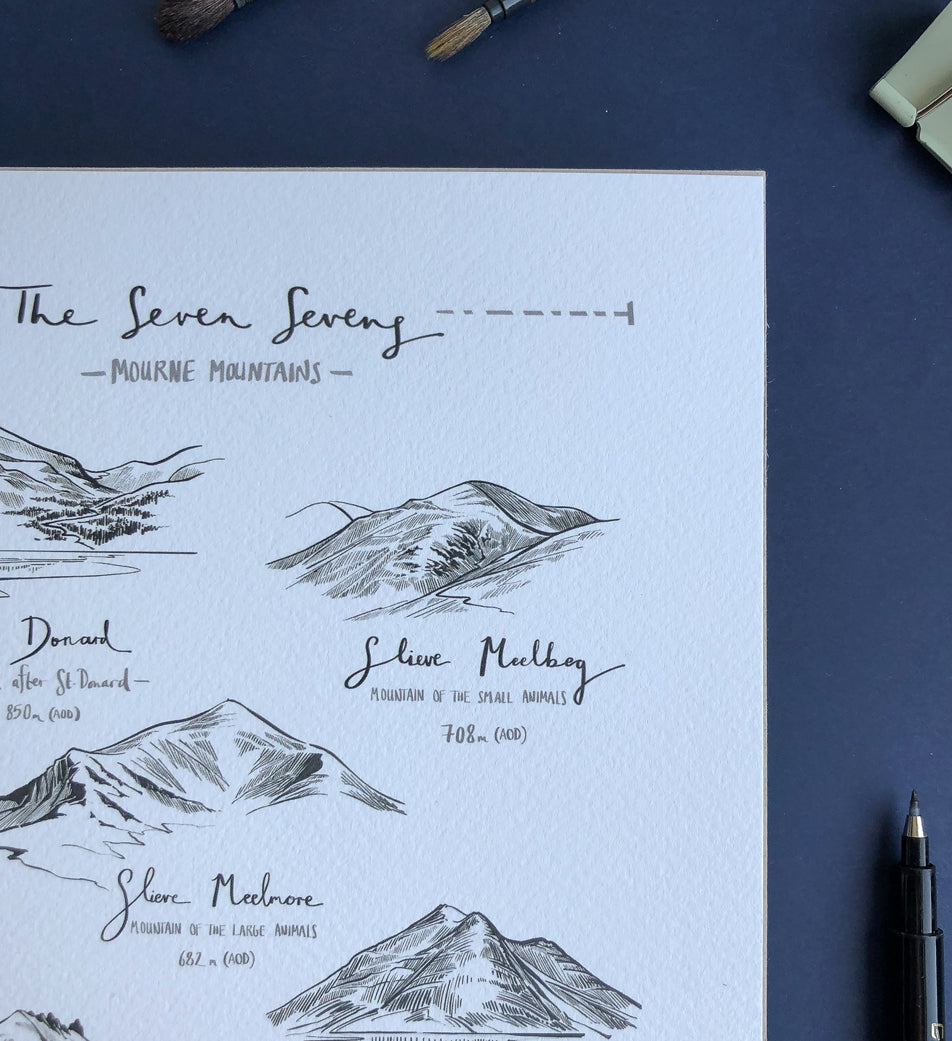 The Seven Sevens
— MOURNE MOUNTAINS —
Donard
after St. Donard —
850m (AOD)
Slieve Meelbeg
MOUNTAIN OF THE SMALL ANIMALS
708m (AOD)
Slieve Meelmore
MOUNTAIN OF THE LARGE ANIMALS
682m (AOD)